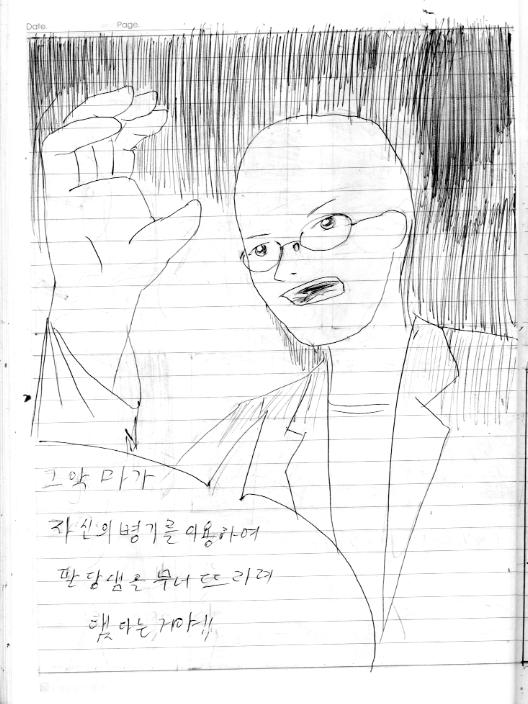 Date. Page.
그 악마가
자신의 병기를 사용하여
팔당댐을 무너뜨리려
했다는 거야!!